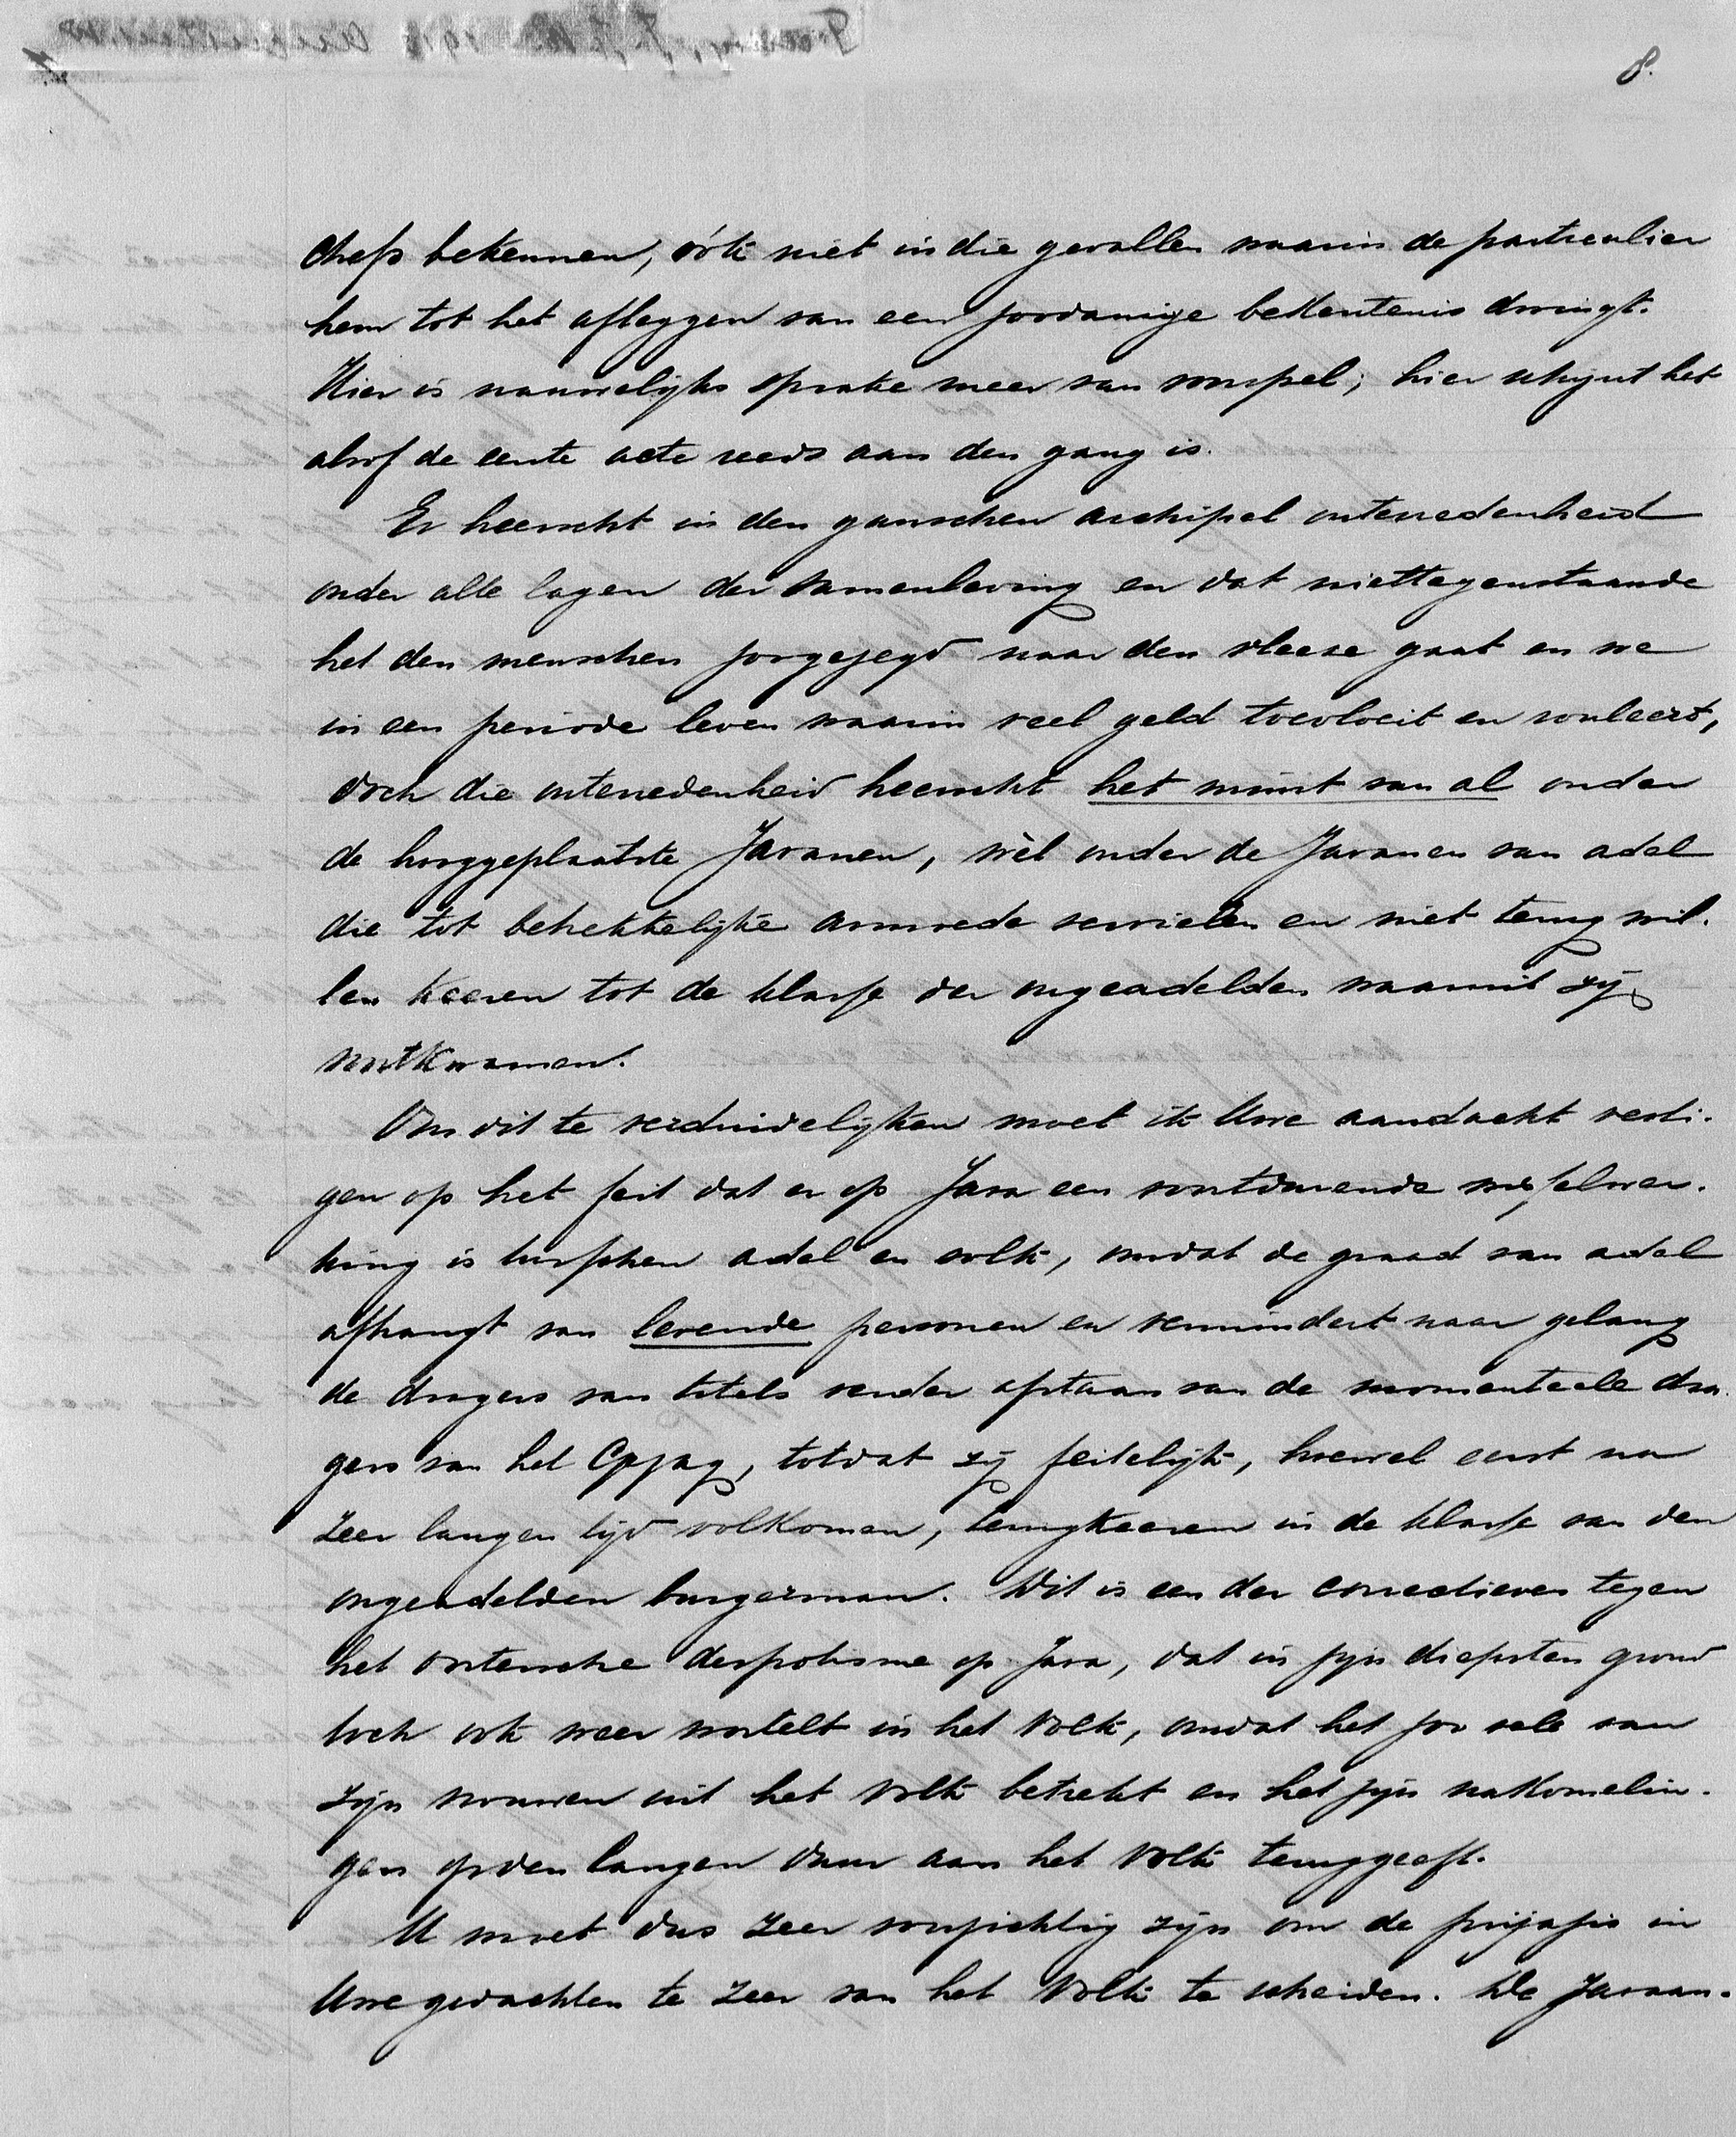 8.
chefs bekennen, óók niet in die gevallen waarin de particulier
hem tot het afleggen van een zoodanige bekentenis dwingt.
Hier is nauwelijks sprake meer van voorspel; hier schijnt het
alsof de eerste acte reeds aan den gang is.
Er heerscht in den ganschen archipel ontevredenheid
onder alle lagen der samenleving en dat niettegenstaande
het den menschen zoogezegd naar den vleeze gaat en we
in een periode leven waarin veel geld toevloeit en rouleert,
doch die ontevredenheid heerscht het minst van al onder
de hooggeplaatste Javanen, wèl onder de Javanen van adel
die tot betrekkelijke armoede vervielen en niet terug wil-
len keeren tot de klasse der ongeadelden waaruit zij
voortkwamen.
Om dit te verduidelijken moet ik Uwe aandacht vesti-
gen op het feit dat er op Java een voortdurende wisselwer-
king is tusschen adel en volk, omdat de graad van adel
afhangt van levende personen en vermindert naar gelang
de dragers van titels verder afstaan van de momenteele dra-
gers van het gezag, totdat zij feitelijk, hoewel eerst na
zeer langen tijd volkomen, terugkeeren in de klasse van den
ongeadelden burgerman. Dit is een der correctieven tegen
het oostersche despotisme op Java, dat in zijn diepsten grond
toch ook weer wortelt in het volk, omdat het zoo vele van
zijn vrouwen uit het volk betrekt en het zijn nakomelin-
gen op den langen duur aan het volk teruggeeft.
U moet dus zeer voorzichtig zijn om de prijajis in
Uwe gedachten te zeer van het volk te scheiden. De Javaan-